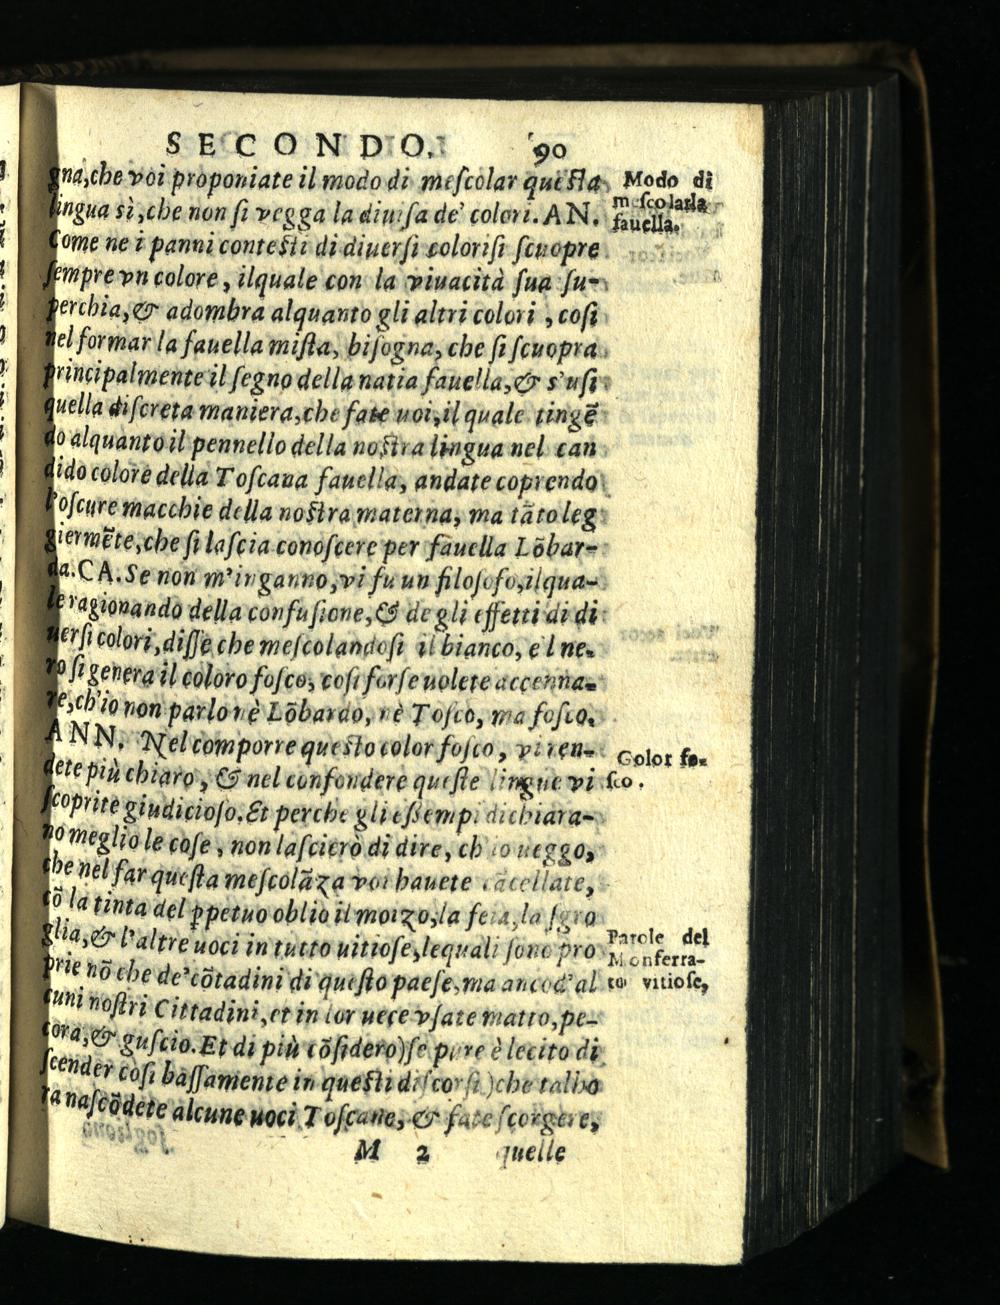 SECONDO. 90
gna, che voi proponiate il modo di meſcolar queſta
lingua sì, che non ſi vegga la diuiſa de' colori. AN.
Come ne i panni conteſti di diuerſi coloriſi ſcuopre
ſempre vn colore, ilquale con la viuacità ſua ſu-
perchia, & adombra alquanto gli altri colori, coſi
nel formar la fauella miſta, biſogna, che ſi ſcuopra
principalmente il ſegno della natia fauella, & s'uſi
quella diſcreta maniera, che fate uoi, il quale tingē
do alquanto il pennello della noſtra lingua nel can
dido colore della Toſcana fauella, andate coprendo
l'oſcure macchie della noſtra materna, ma tāto leg
giermēte, che ſi laſcia conoſcere per fauella Lōbar-
da. CA. Se non m'inganno, vi fu un filoſofo, ilqua-
le ragionando della confuſione, & de gli effetti di di
uerſi colori, diſſe che meſcolandoſi il bianco, e'l ne-
ro ſi genera il coloro foſco, coſi forſe uolete accenna-
re, ch'io non parlo nè Lōbardo, nè Toſco, ma foſco.
ANN. Nel comporre queſto color foſco, vi ren-
dete più chiaro, & nel confondere queſte lingue vi
ſcoprite giudicioſo. Et perche gli eſſempi dichiara-
no meglio le coſe, non laſcierò di dire, ch'io ueggo,
che nel far queſta meſcolāza voi hauete cācellate,
cō la tinta del ꝑpetuo oblio il moizo, la feia, la ſgro
glia, & l'altre uoci in tutto uitioſe, lequali ſono pro
prie nō che de' cōtadini di queſto paeſe, ma ancod'al
cuni noſtri Cittadini, et in lor uece vſate matto, pe-
cora, & guſcio. Et di più cōſidero) ſe pure è lecito di
ſcender coſi baſſamente in queſti diſcorſi) che talho
ra naſcōdete alcune uoci Toſcane, & fate ſcorgere,
M 2 quelle
Modo di
meſcolarla
fauella.
Color fo-
ſco.
Parole del
Monferra-
to vitioſe,